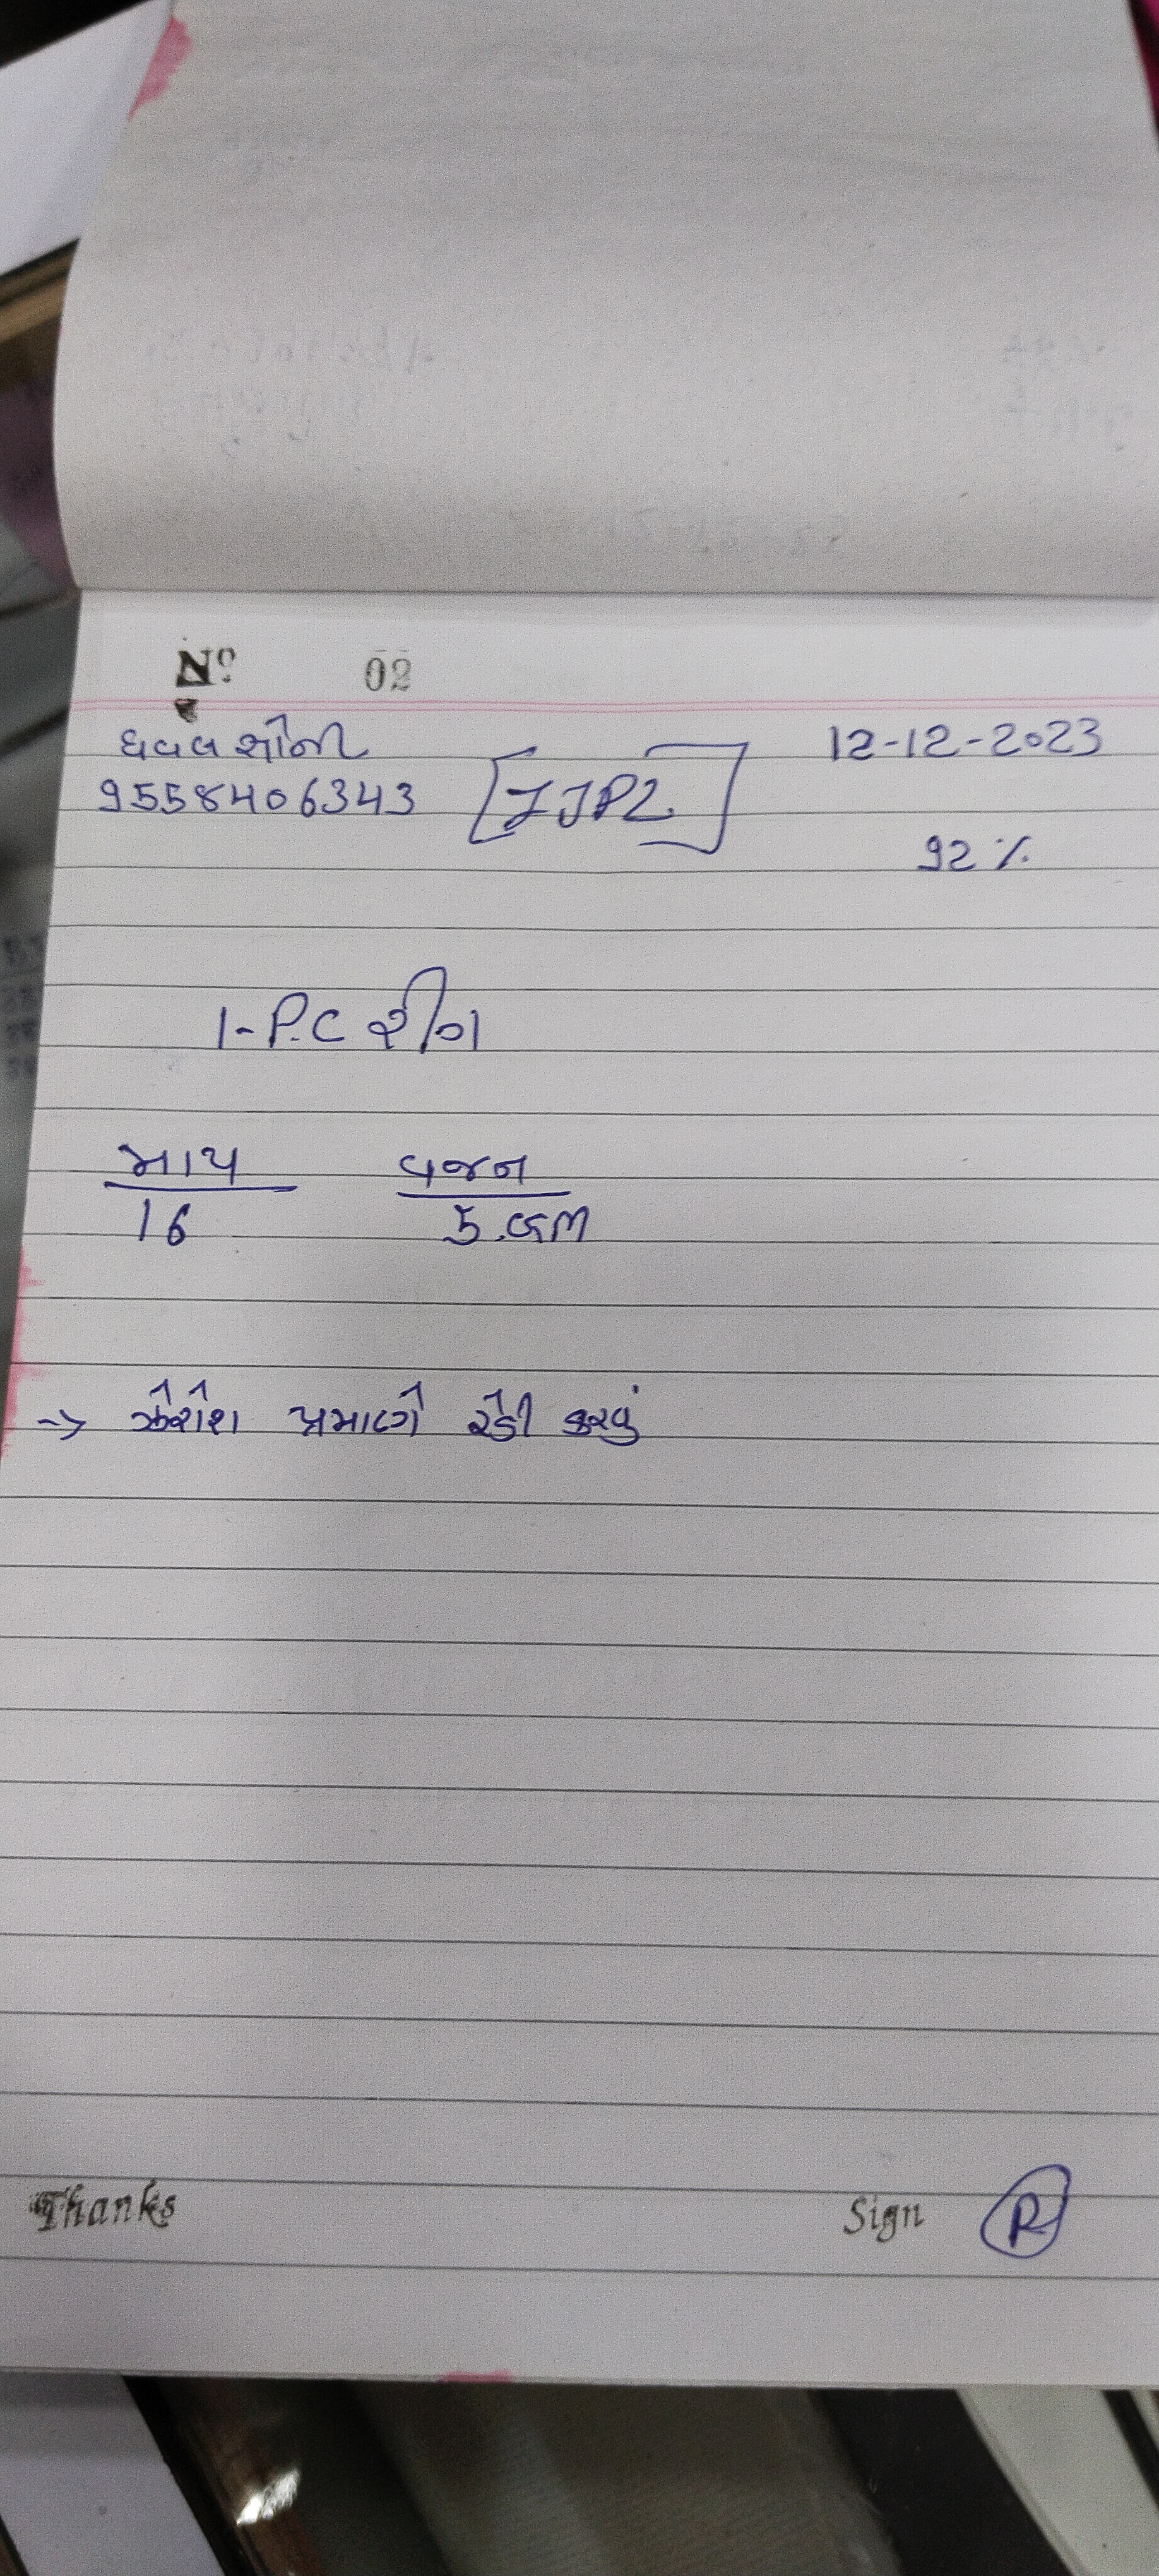 Nº 02
ધવલ સોની 12-12-2023
9558406343 [JJPL]
92 %
1-P.C રીંગ
માપ વજન
16 5.ગ્રામ
→ ઝેરોક્ષ પ્રમાણે રેડી કરવું
Thanks Sign R